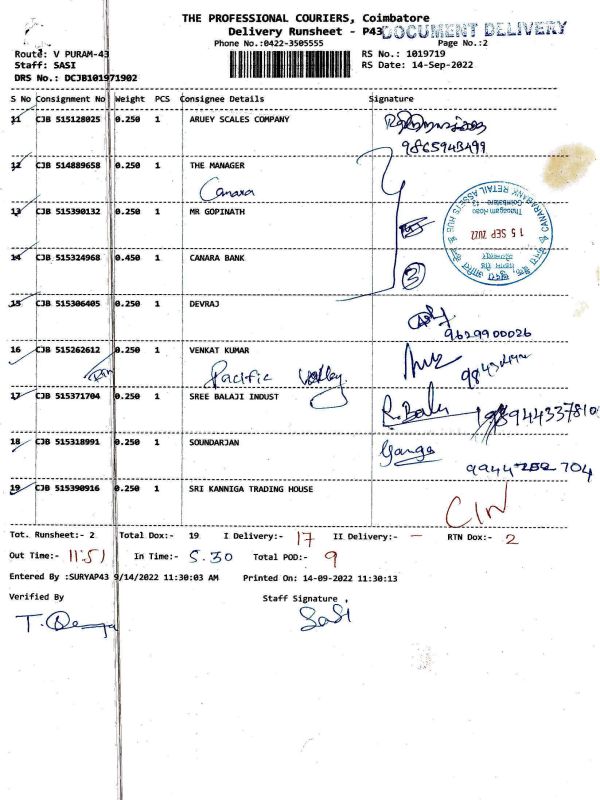 THE PROFESSIONAL COURIERS, Coimbatore
Delivery Runsheet - P43
DOCUMENT DELIVERY
Phone No.:0422-3505555
Page No.:2
Route: V PURAM-43
RS No.: 1019719
Staff: SASI
RS Date: 14-Sep-2022
DRS No.: DCJB101971902
S No Consignment No Weight PCS Consignee Details Signature
11 CJB 515128025 0.250 1 ARUEY SCALES COMPANY
12 CJB 514889658 0.250 1 THE MANAGER
Canara
13 CJB 515390132 0.250 1 MR GOPINATH
CANARA BANK RETAIL ASSETS HUB
Coimbatore
15 SEP 2022
14 CJB 515324968 0.450 1 CANARA BANK
3
15 CJB 515306405 0.250 1 DEVRAJ
9629900026
16 CJB 515262612 0.250 1 VENKAT KUMAR
Pacific
17 CJB 515371704 0.250 1 SREE BALAJI INDUST
R. Balu
18 CJB 515318991 0.250 1 SOUNDARJAN
Ganga
19 CJB 515390916 0.250 1 SRI KANNIGA TRADING HOUSE
Tot. Runsheet:- 2 Total Dox:- 19 I Delivery:- 17 II Delivery:- — RTN Dox:- 2
Out Time:- 11:51 In Time:- 5.30 Total POD:- 9
Entered By :SURYAP43 9/14/2022 11:30:03 AM Printed On: 14-09-2022 11:30:13
Verified By
Staff Signature
SaSi